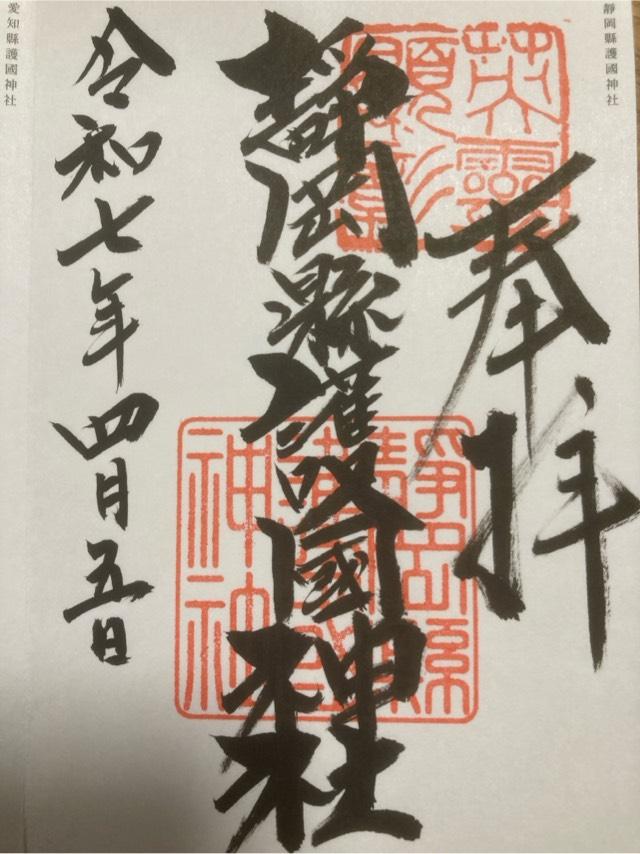 靜岡縣護國神社
奉拝
英霊顕彰
靜岡縣護國神社
靜岡縣護國神社
令和七年四月五日
愛知縣護國神社